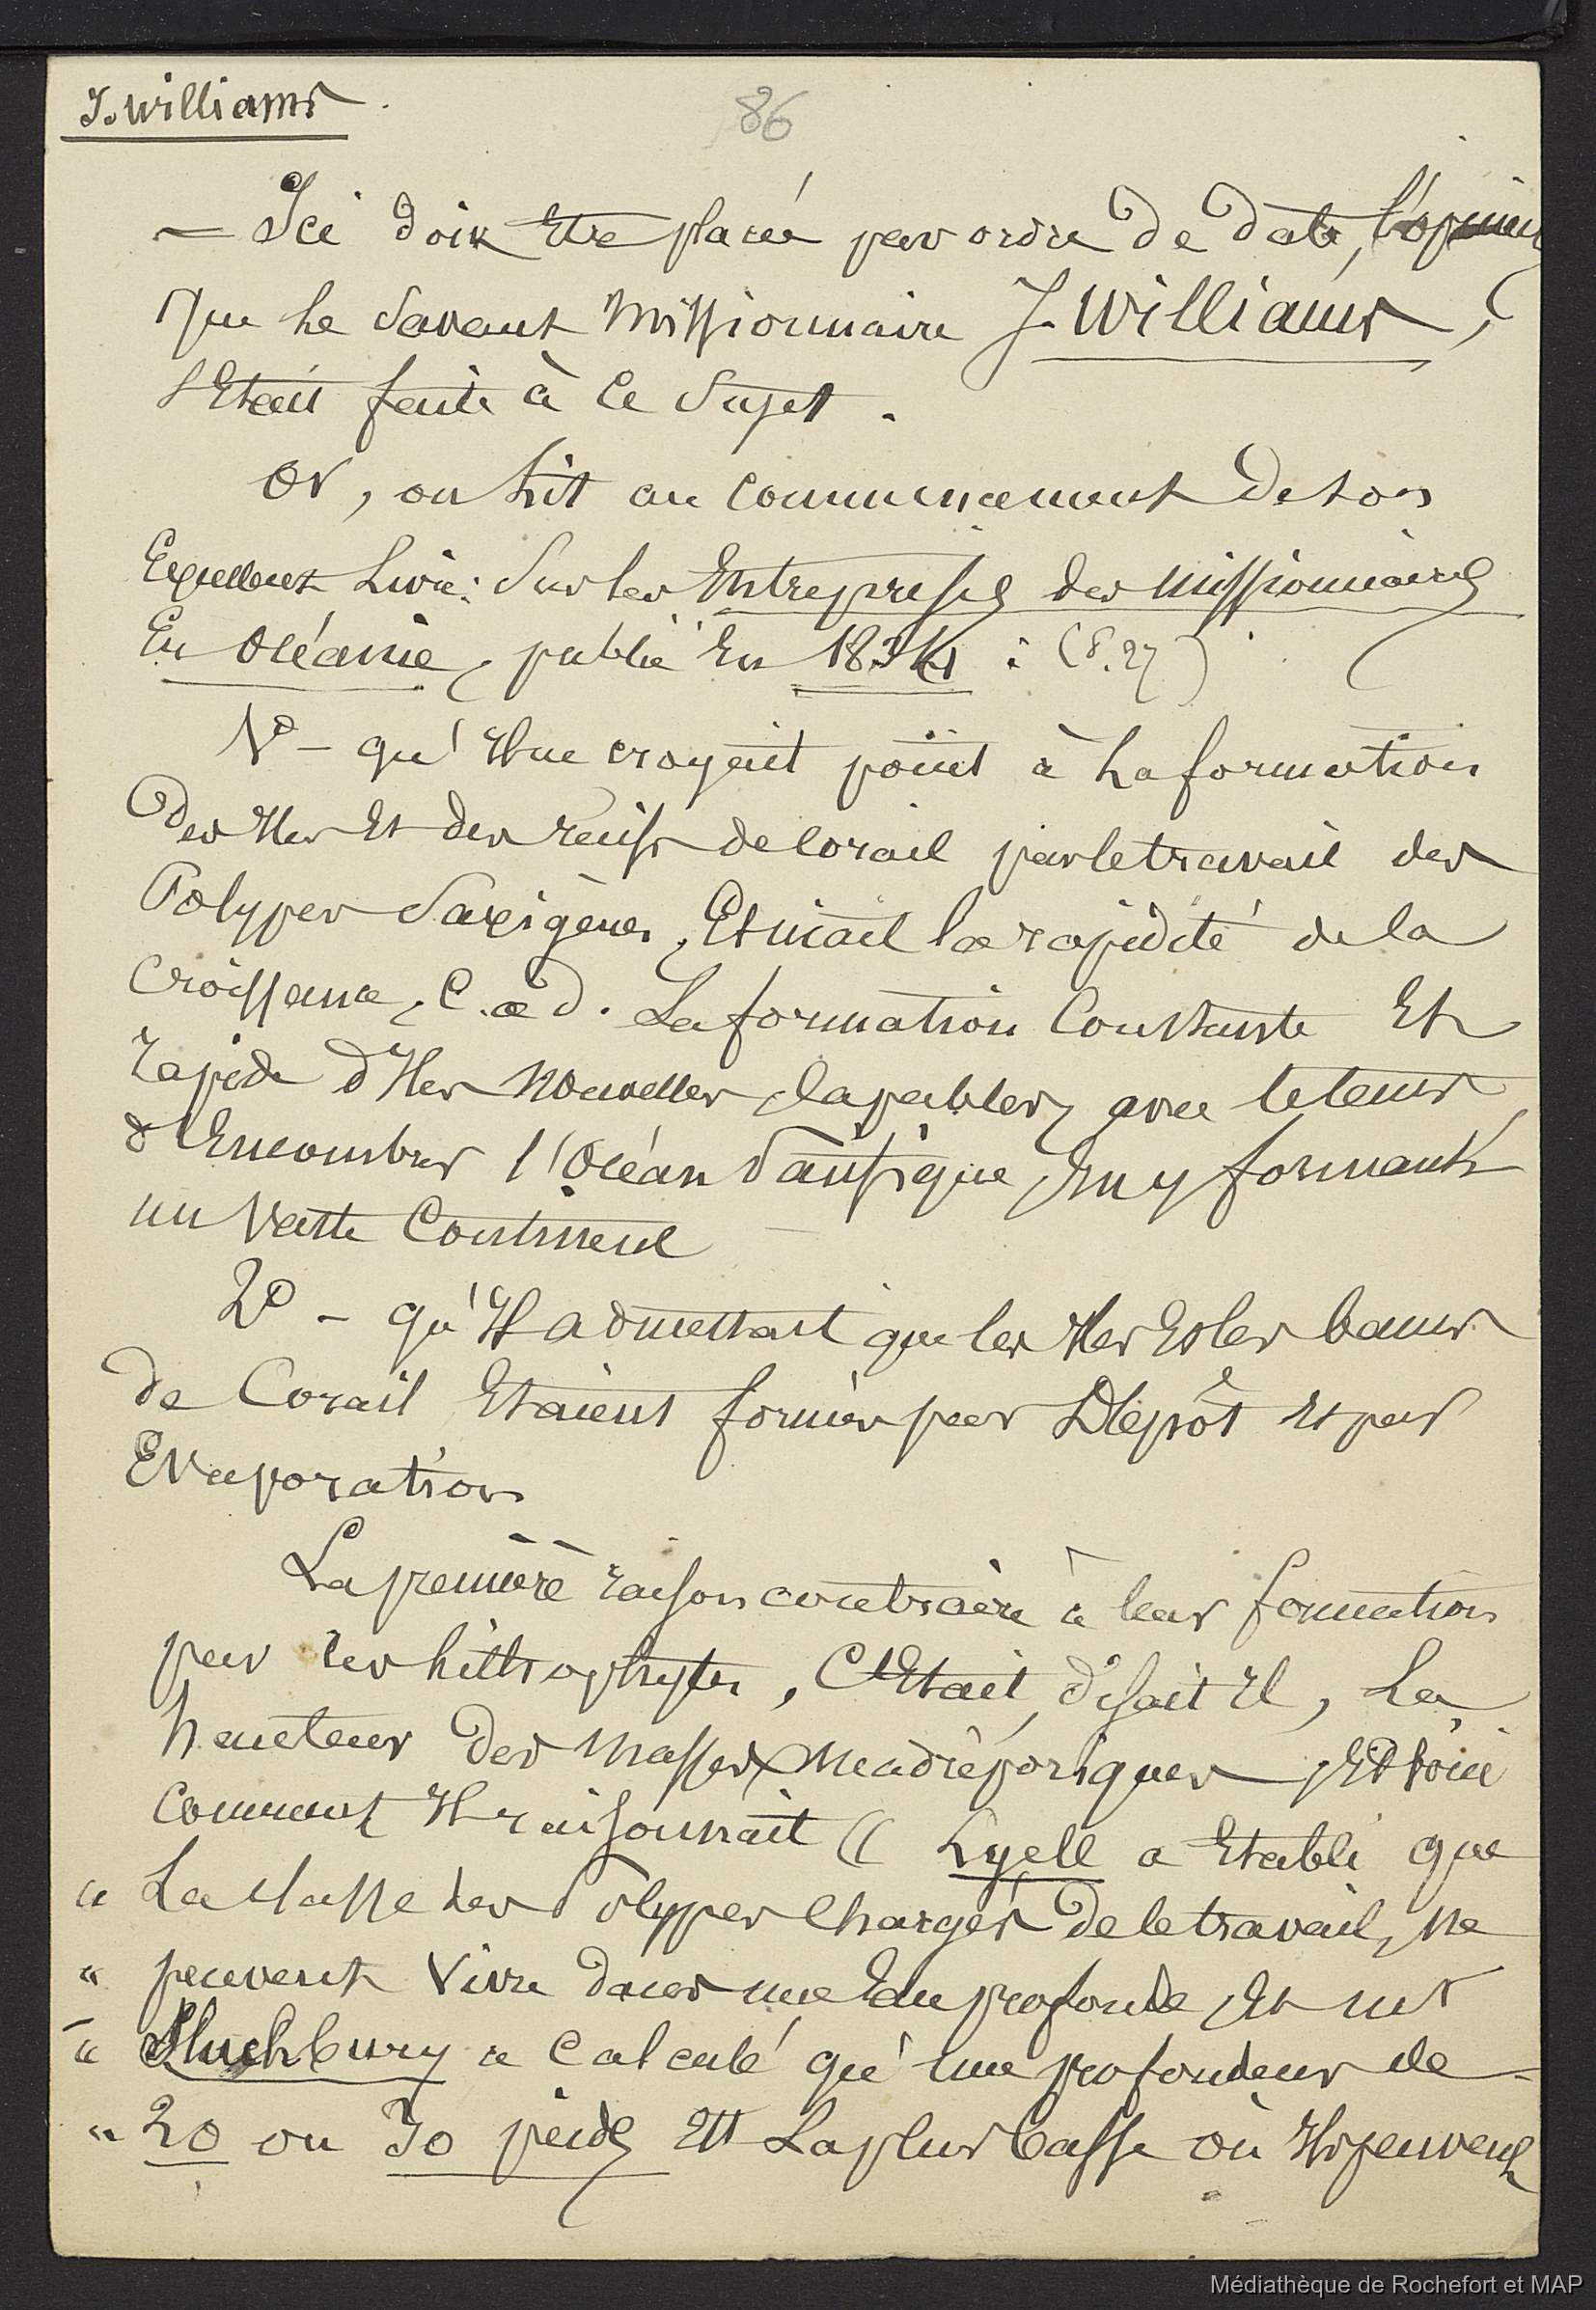 J. Williams
86
— Ici doit Etre placée par ordre de date, l'opinion
que le Savant Missionnaire J. Williams,
s'Etait faite à ce Sujet.
Or, on lit au commencement de son
Excellent Livre: Sur les Entreprises des Missionnaires
En Océanie, publié En 1834 : (P. 27)
1º – qu'Il ne croyait point à la formation
des Iles Et des récifs de Corail par le travail des
Polypes Saxigènes, Et niait la rapidité de la
Croissance, C. a d. La formation Constante Et
rapide d'Iles Nouvelles, Capables, avec le temps
d'Encombrer l'Océan Pacifique, En y formant
un Vaste Continent
2º – qu'Il admettait que les Iles Et les bancs
de Corail Etaient formés par Dépôt Et par
Evaporation
La première raison contraire à leur formation
par les lithophytes, C'Etait, disait Il, La
hauteur des Masses Madréporiques, Et voici
Comment Il raisonnait (( Lyell a Etabli que
" La classe des Polypes Chargés de ce travail, Ne
" peuvent Vivre dans une Eau profonde, Et Mr
" Stuchbury a Calculé qu'une profondeur de
" 20 ou 30 pieds Est La plus basse où Ils peuvent
Médiathèque de Rochefort et MAP